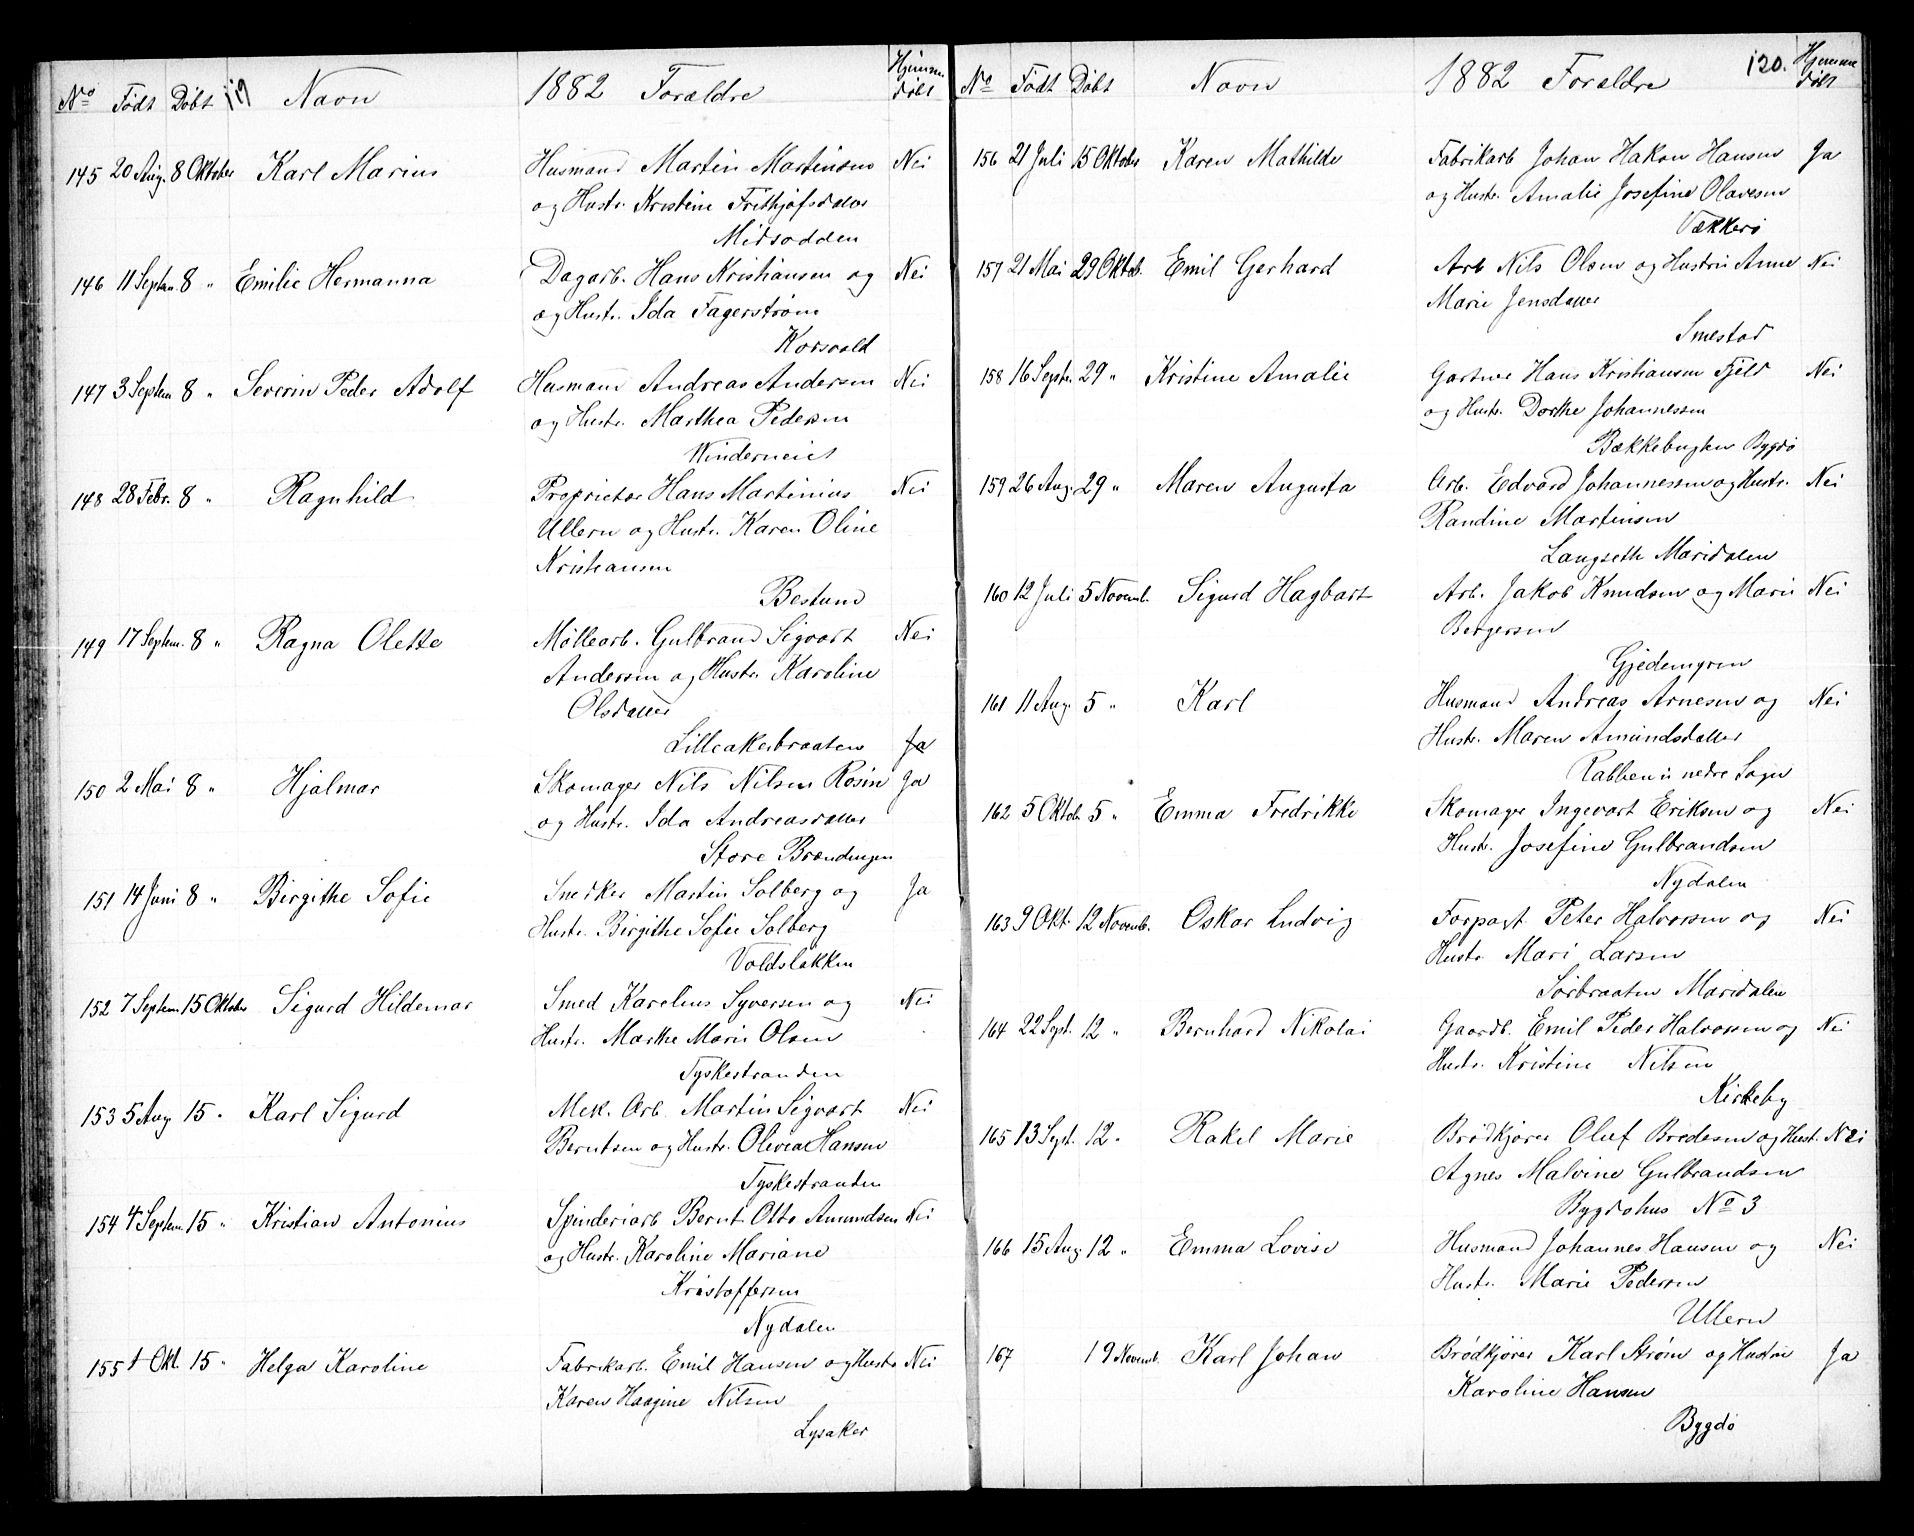 No Født Døbt 119 Navn 1882 Forældre Hjemmedøbt
145 20 Aug. 8 Oktober Karl Marius Husmand Martin Martinsen Nei
og Hustr. Kristine Frithjofsdatter
Midsodden
146 11 Septem 8 " Emilie Hermanna Dagarb. Hans Kristiansen og Nei
og Hustr. Ida Fagerstrøm
Korsvold
147 3 Septem 8 " Severin Peder Adolf Husmand Andreas Andersen Nei
og Hustr. Marthea Pedersen
Vinderneiet
148 28 Febr. 8 " Ragnhild Proprietær Hans Martinius Nei
Ullern og Hustr. Karen Oline
Kristiansen
Bestund
149 17 Septem. 8 " Ragna Olette Møllearb. Gulbrand Sigvart Nei
Andersen og Hustr. Karoline
Olsdatter
Lilleakerbraaten Ja
150 2 Mai 8 " Hjalmar Skomager Nils Nilsen Rosin Ja
og Hustr. Ida Andreasdatter
Store Brændengen
151 14 Juni 8 " Birgithe Sofie Snedker Martin Solberg og Ja
Hustr. Birgithe Sofie Solberg
Voldsløkken
152 7 Septem. 15 Oktober Sigurd Hildemar Smed Karelius Syversen og Nei
Hustr. Marthe Marie Olsen
Tyskestranden
153 5 Aug 15 " Karl Sigurd Mek. Arb. Martin Sigvart Nei
Berntsen og Hustr. Olivia Hansen
Tyskestranden
154 4 Septem. 15 " Kristian Antonius Spinderiarb Bernt Otto Amundsen Nei
og Hustr. Karoline Mariane
Kristoffersen
Nydalen
155 1 Okt. 15 " Helga Karoline Fabrikarb. Emil Hansen og Hustr. Nei
Karen Haagine Nilsen
Lysaker
No Født Døbt Navn 1882 Forældre 120. Hjemmedøbt
156 21 Juli 15 Oktober Karen Mathilde Fabrikarb Johan Hakon Hansen Ja
og Hustr. Amalie Josefine Olavesen
Vækkerø
157 21 Mai 29 Oktob. Emil Gerhard Arb Nils Olsen og Hustru Anne Nei
Marie Jensdatter
Smestad
158 16 Septr. 29 " Kristine Amalie Gartner Hans Kristiansen Fjeld Nei
og Hustr. Dorthe Johannessen
Bækkebugten Bygdø
159 26 Aug. 29 " Maren Augusta Arb. Edvard Johannessen og Hustr. Nei
Randine Martinsen
Langseth Maridalen
160 12 Juli 5 Novemb. Sigurd Hagbart Arb. Jakob Knudsen og Marie Nei
Bergersen
Gjedemyren
161 11 Aug. 5 " Karl Husmand Andreas Arnesen og Nei
Hustr. Maren Amundsdatter
Rabben i nedre Sogn
162 5 Oktob. 5 " Emma Fredrikke Skomager Ingevart Eriksen og Nei
Hustr. Josefine Gulbrandsen
Nydalen
163 9 Okt. 12 Novemb. Oskar Ludvig Forpagt Peter Halvorsen og Nei
Hustr Mari Larsen
Sørbraaten Maridalen
164 22 Sept. 12 " Bernhard Nikolai Gaardb. Emil Peder Halvorsen og Nei
Hustr. Kristine Nilsen
Kirkeby
165 13 Sept. 12 " Rakel Marie Brødkjører Oluf Bredesen og Hust. Nei
Agnes Malvine Gulbrandsen
Bygdøhus No 3
166 15 Aug 12 " Emma Lovise Husmand Johannes Hansen og Nei
Hustr. Marie Pedersen
Ullern
167 19 Novemb. Karl Johan Brødkjører Karl Strøm og Hustru Ja
Karoline Hansen
Bygdø